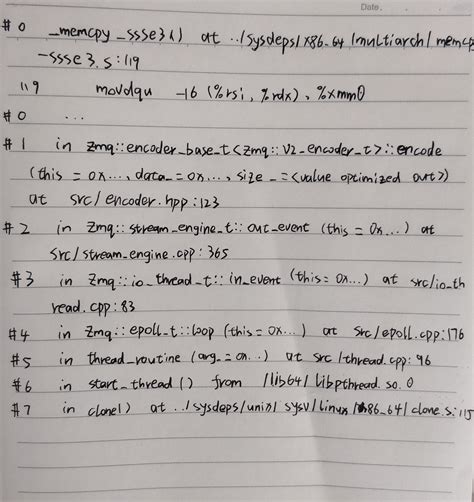 Date.
#0 _memcpy_ssse3() at ../sysdeps/x86_64/multiarch/memcp
-ssse3.s:119
119 movdqu -16(%rsi, %rdx), %xmm0
#0 ...
#1 in zmq::encoder_base_t<zmq::v2_encoder_t>::encode
(this = 0x..., data_=0x..., size_=<value optimized out>)
at src/encoder.hpp:123
#2 in zmq::stream_engine_t::out_event (this = 0x...) at
src/stream_engine.cpp:365
#3 in zmq::io_thread_t::in_event (this=0x...) at src/io_th
read.cpp:83
#4 in zmq::epoll_t::loop (this=0x...) at src/epoll.cpp:176
#5 in thread_routine (arg_=0x..) at src/thread.cpp:96
#6 in start_thread() from /lib64/libpthread.so.0
#7 in clone() at ../sysdeps/unix/sysv/linux/x86_64/clone.s:115